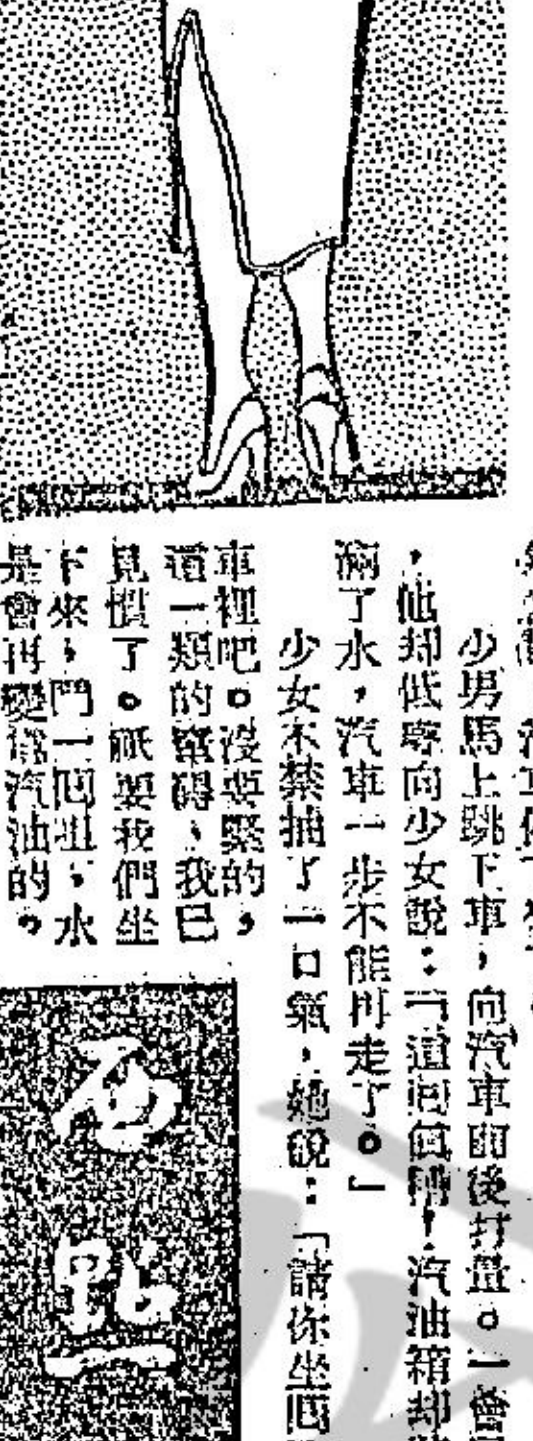 少男馬上跳下車，向汽車前後打量。一會
，他却低聲向少女說：「這回真糟！汽油箱却
滿了水，汽車一步不能再走了。」
少女不禁抽了一口氣，她說：「請你坐回
車裡吧。沒要緊的，
這一類的窒碍、我已
見慣了。祇要我們坐
下來，鬥一回咀，水
是會再變爲汽油的。
點